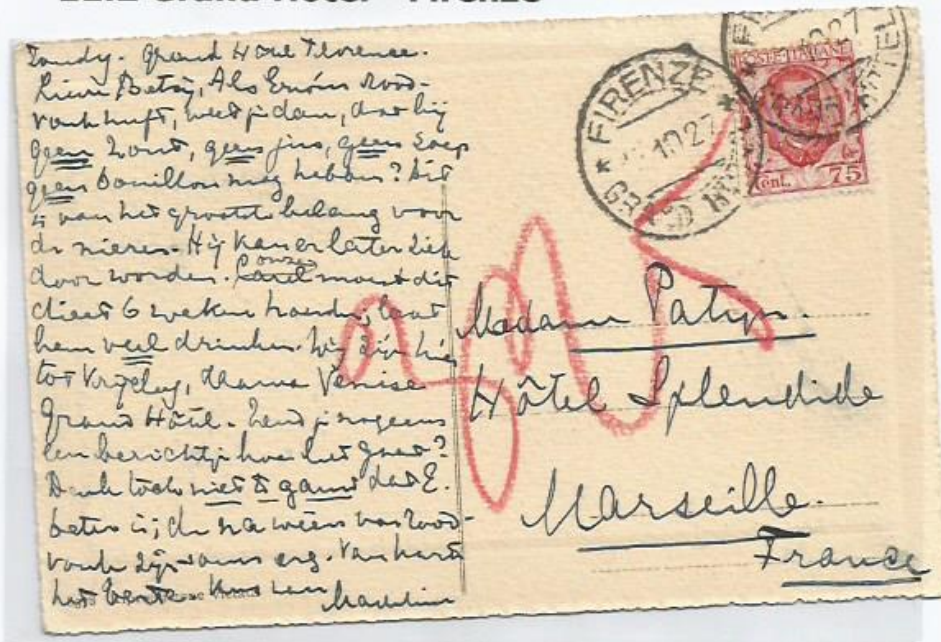 Zondag. Grand Hotel Florence.
Lieve Betsy, Als E roodvonk heeft, weet je dan, dat hij
geen zout, geen jus, geen soep
geen bouillon mag hebben? Dit
is van het grootste belang voor
de nieren. Hij kan er later ziek
door worden. onze Carel moest dit
dieet 6 weken houden, laat
hem veel drinken. Wij zijn hier
tot Vrijdag, daarna Venise
Grand Hôtel. Zend je nog eens
een berichtje hoe het gaat?
Denk toch niet te gauw dat E.
beter is; de na weeën van rood-
vonk zijn soms erg. Van harte
het beste. Kus van
Madeline
FIRENZE
10 27
GR
POSTE ITALIANE
Cent. 75
Madame Patijn.
Hôtel Splendide
Marseille.
France